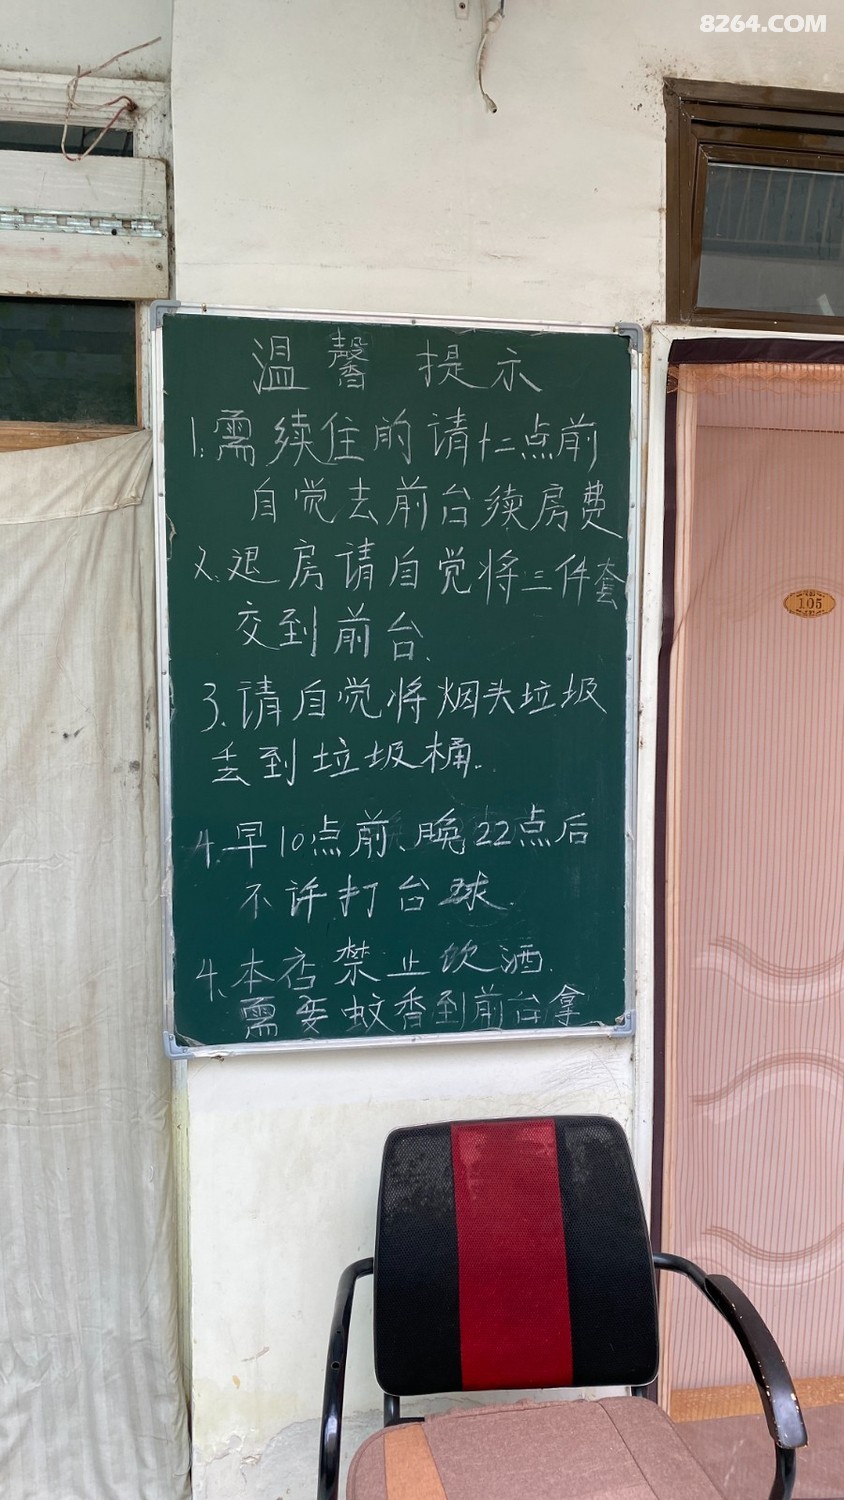 8264.COM
温馨提示
1.需续住的请十二点前
自觉去前台续房费
2.退房请自觉将三件套
交到前台.
3.请自觉将烟头垃圾
丢到垃圾桶.
4.早10点前、晚22点后
不许打台球.
4、本店禁止饮酒.
需要蚊香到前台拿
105